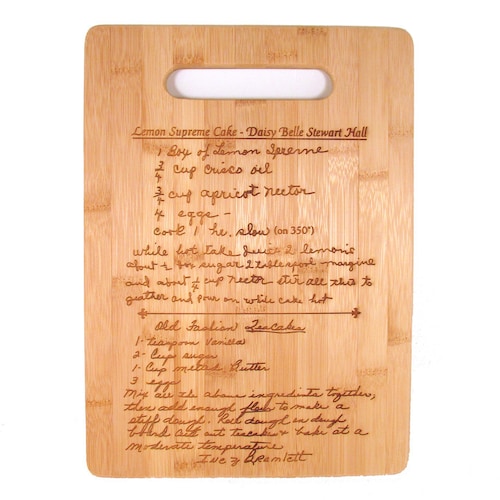 Lemon Supreme Cake - Daisy Belle Stewart Hall
1 Box of Lemon Spreme
3/4 cup crisco oil
3/4 cup apricot nector
4 eggs -
cook 1 hr. slow (on 350°)
while hot take juice 2 lemons
about sugar 2 tablespoon - margine
and about 1/4 cup nector - stir all this to
geather and pour on while cake hot
Old Fashion Teacakes
1- teaspoon vanilla
2- Cup sugar
1- Cup melted Butter
3 eggs
Mix all the above ingredients together,
then add enough flour to make a
stiff dough. Roll dough on dough
board cut out teacake & bake at a
moderate temperature
Inez Bramlett